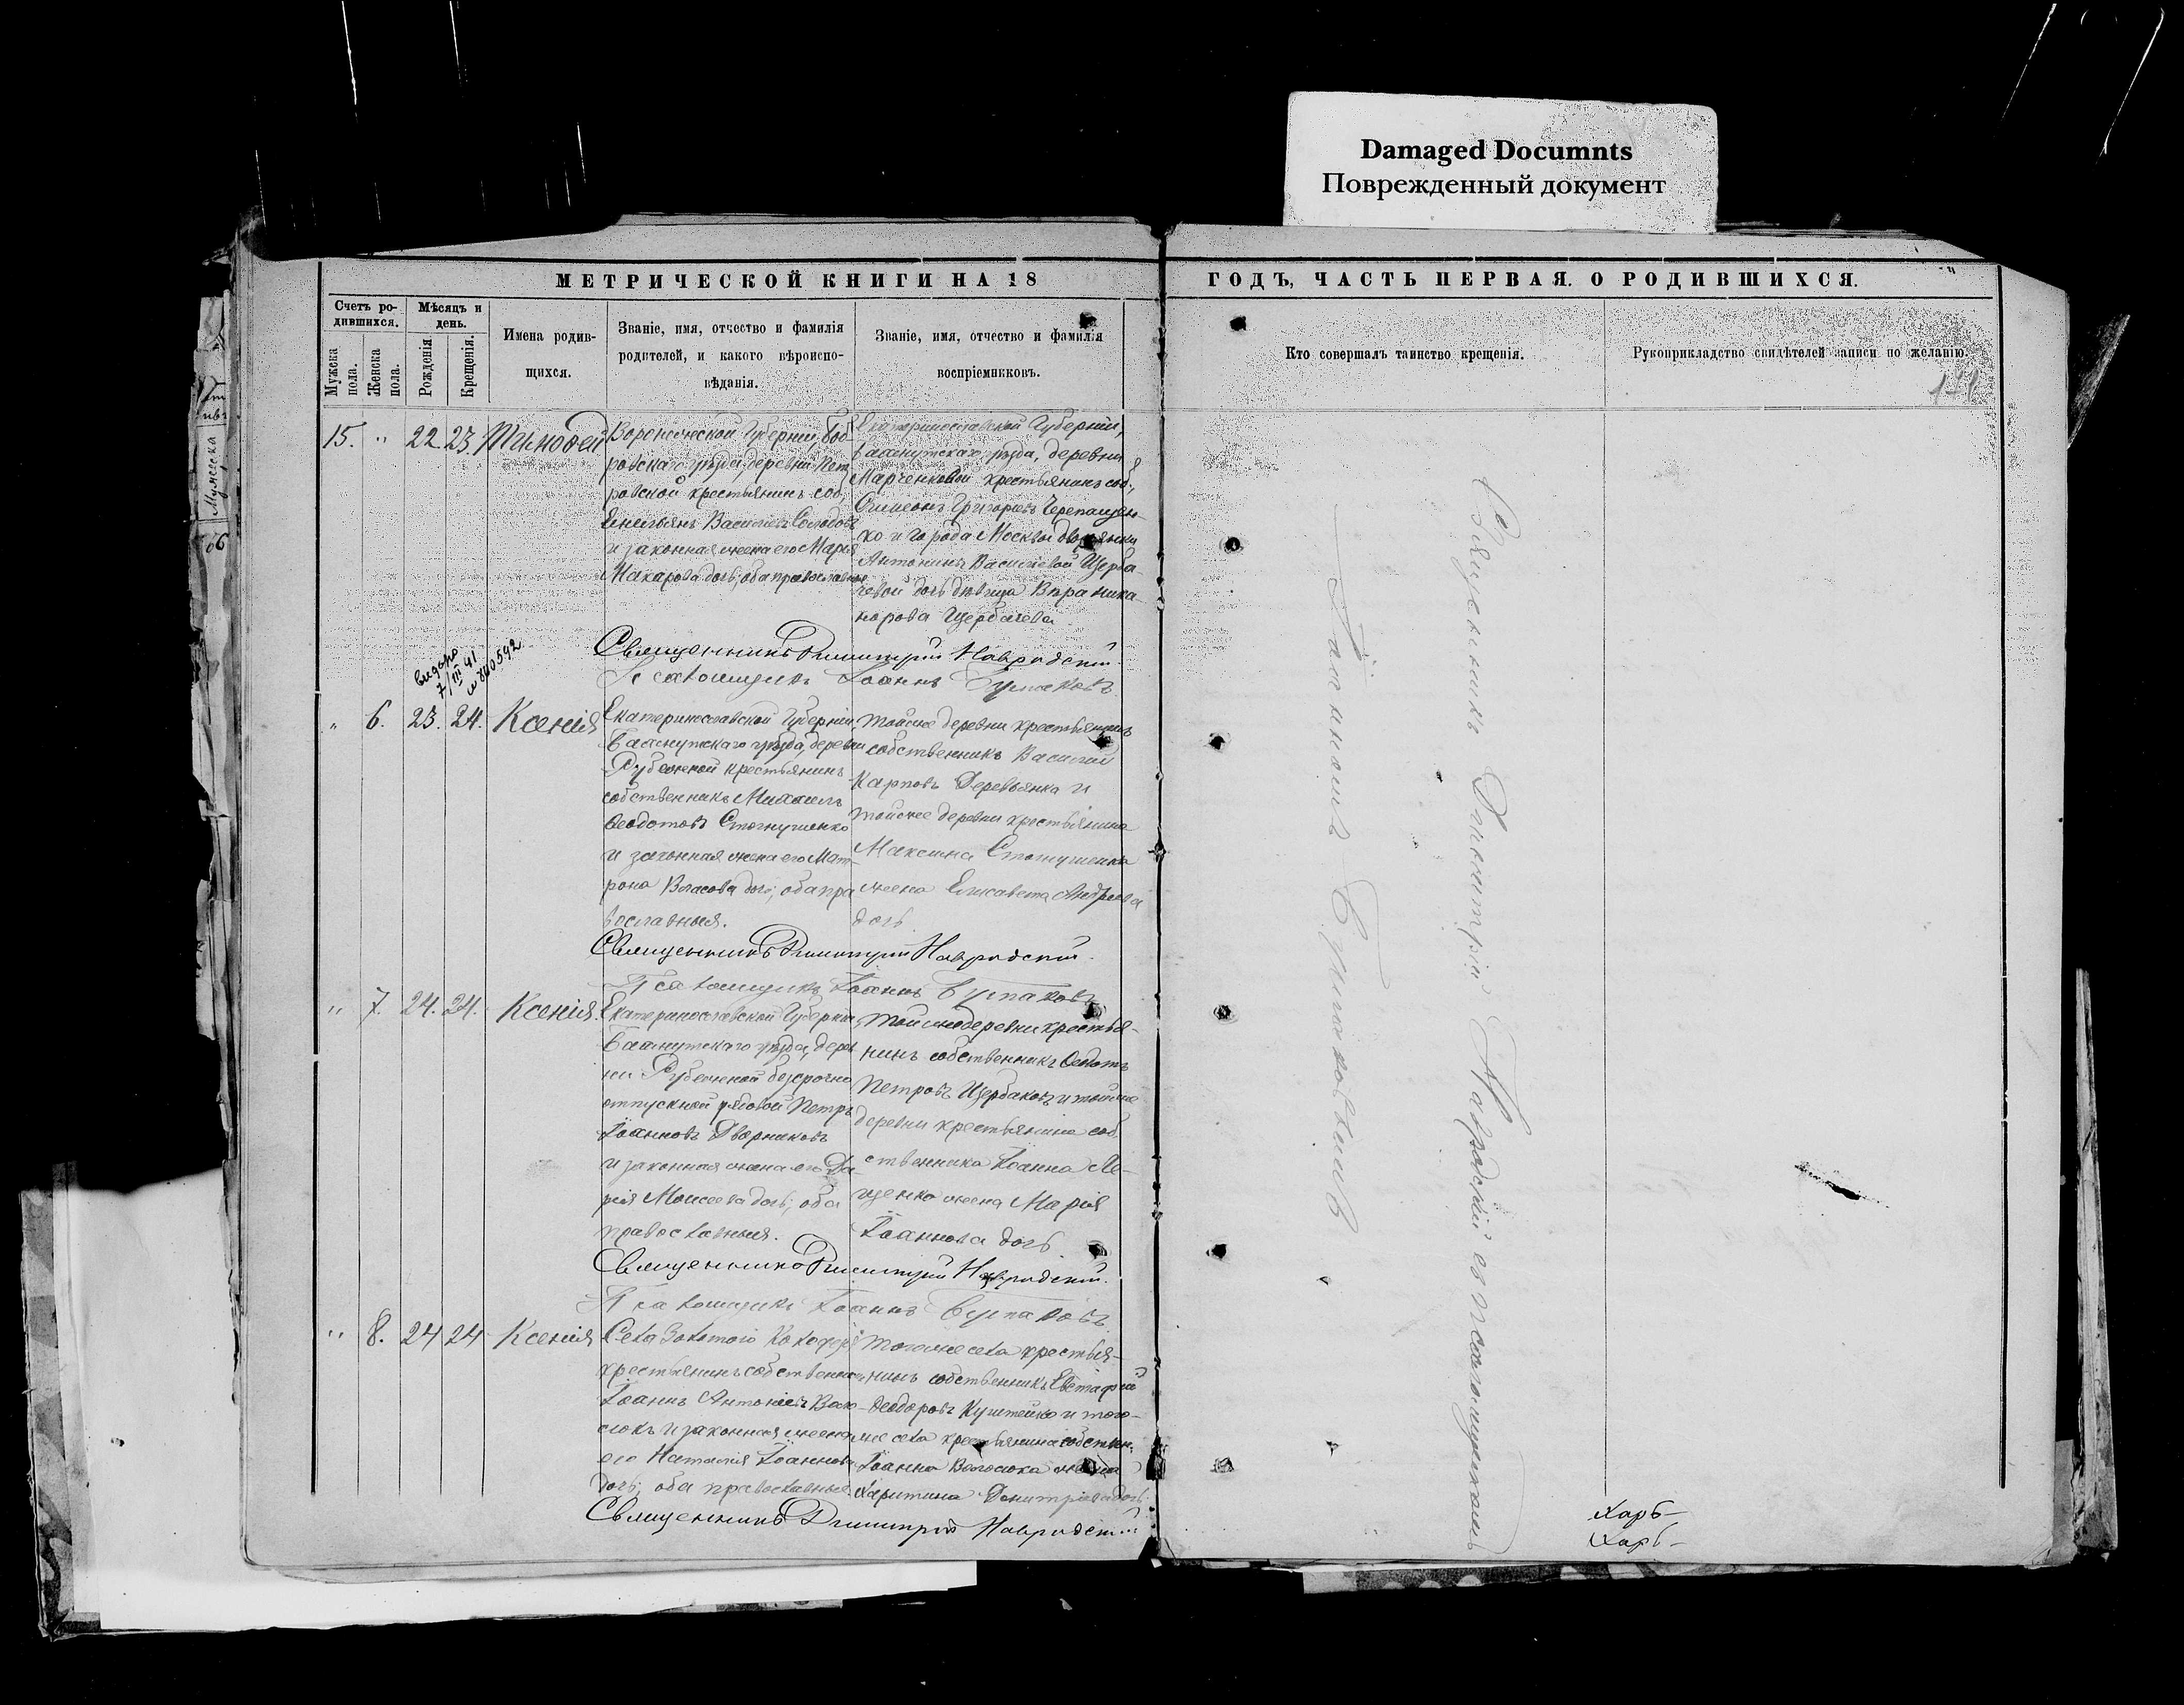 Damaged Documnts
Поврежденный документ
МЕТРИЧЕСКОЙ КНИГИ НА 18
ГОДЪ, ЧАСТЬ ПЕРВАЯ. О РОДИВШИХСЯ.
Счетъ ро-
дившихся.
Мужеска
пола.
Женска
пола.
Мѣсяцъ и
день.
Рожденія.
Крещенія.
Имена родив-
щихся.
Званіе, имя, отчество и фамилія
родителей, и какого вѣроиспо-
вѣданія.
Званіе, имя, отчество и фамилія
воспріемниковъ.
Кто совершалъ таинство крещенія.
Рукоприкладство свидѣтелей записи по желанію.
15. " 22 23 Тимофей
Воронежской Губерніи, Боб-
ровскаго уѣзда, деревни Пет
ровской крестьянинъ соб,
Емельянъ Василіевъ Солодовъ
и законная жена его Марія
Макарова дочь; оба православные
Екатеринославской Губерніи,
Бахмутскаго уѣзда, деревни
Марченковой крестьянинъ соб.,
Симеонъ Григорьевъ Черепащен-
ко и города Москвы дворянки
Антонины Василіевой Щерба-
чевой дочь дѣвица Вѣра Ника
норова Щербачева
Священникъ Димитрій Навродскій.
Псаломщикъ Іоаннъ
видано
7/III 41
" 6. 23. 24. Ксенія
Екатеринославской Губерніи
Бахмутскаго уѣзда, деревни
Рубежной крестьянинъ
собственникъ Михаилъ
Феодотовъ
и законная жена его Мат-
рона Власова дочь; оба пра
вославныя.
тойже деревни крестьянинъ
собственникъ Василій
Карповъ Деревянка и
тойже деревни крестьянина
Максима
жена Елисавета Андреева
дочь.
Священникъ Димитрій Навродскій.
Псаломщикъ Іоаннъ
" 7. 24. 24. Ксенія.
Екатеринославской Губерніи
Бахмутскаго уѣзда, дерев
ни Рубежной безсрочно
отпускной рядовой Петръ
Іоанновъ Дворниковъ
и законная жена его Да-
рія Моисеева дочь; оба
православныя.
тойже деревни крестья-
нинъ собственникъ Феодотъ
Петровъ Щербаковъ и тойже
деревни крестьянина соб
ственника Іоанна Ле-
щенко жена Марія
Іоаннова дочь.
Священникъ Димитрій Навродскій.
Псаломщикъ Іоаннъ
" 8. 24 24 Ксенія
Села Золотого Колодезя
крестьянинъ собственникъ
Іоаннъ Антоніевъ Воло-
сюкъ и законная жена
его Наталія Іоаннова
дочь; оба православныя.
тогоже села крестья-
нинъ собственникъ Евстафій
Феодоровъ и того-
же села крестьянина собствен.
Іоанна Волосюка жена
Харитина Димитріева дочь.
Священникъ Димитрій Навродскій
Священникъ Димитрій Навродскій съ псаломщикомъ
Іоанномъ
Харь-
Харь-